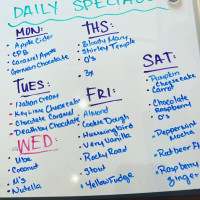 DAILY SPECIALS
MON:
• Apple Cider
• CPB
• Caramel Apple
• German Chocolate
TUES:
• Italian Cream
• Key Lime Cheesecake
• Chocolate Caramel
• Death by Chocolate
WED:
• Ube
• Coconut
• M's
• Nutella
THS:
• Bloody Mary
• Shirley Temple
• O's
• Bx
FRI:
• Almond
• Cookie Dough
• Hummingbird
• Very Vanilla
• Rocky Road
• Stout
• Yellow Fudge
SAT:
• Pumpkin
Cheesecake
Carrot
• Chocolate
Raspberry
O's
• Peppermint
Mocha
• Rootbeer Fl
• Raspberry
Zinger